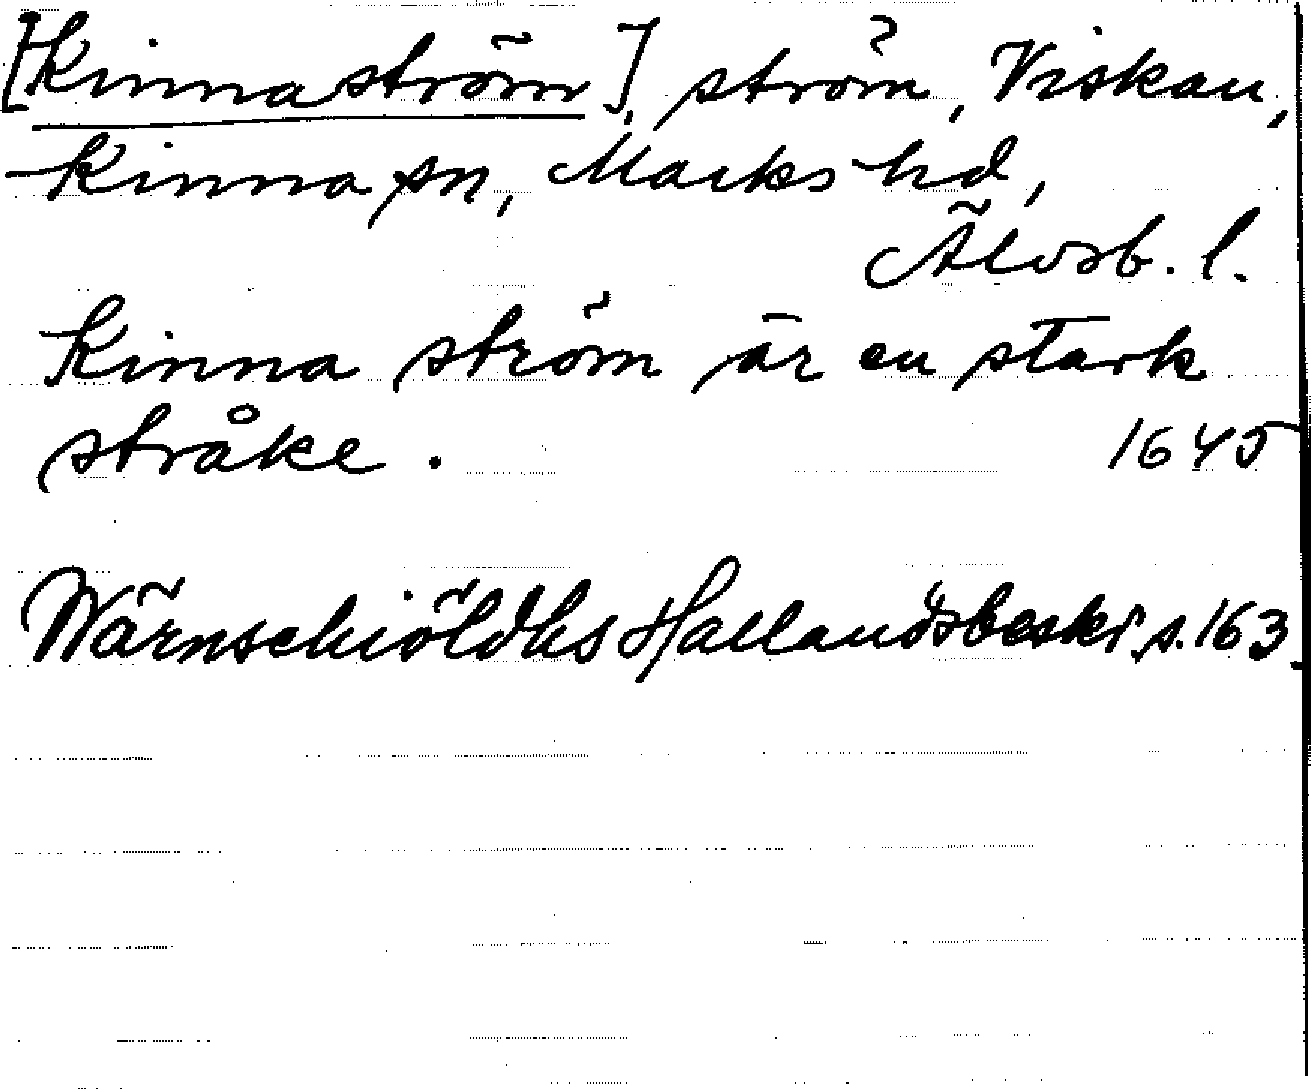 [Kinnaström], ström, Viskan,
Kinna sn, Marks hd,
Älvsb. l.
Kinna ström är en stark
stråke. 1645
Wärnschiöldhs Hallandsbeskr. s. 163.